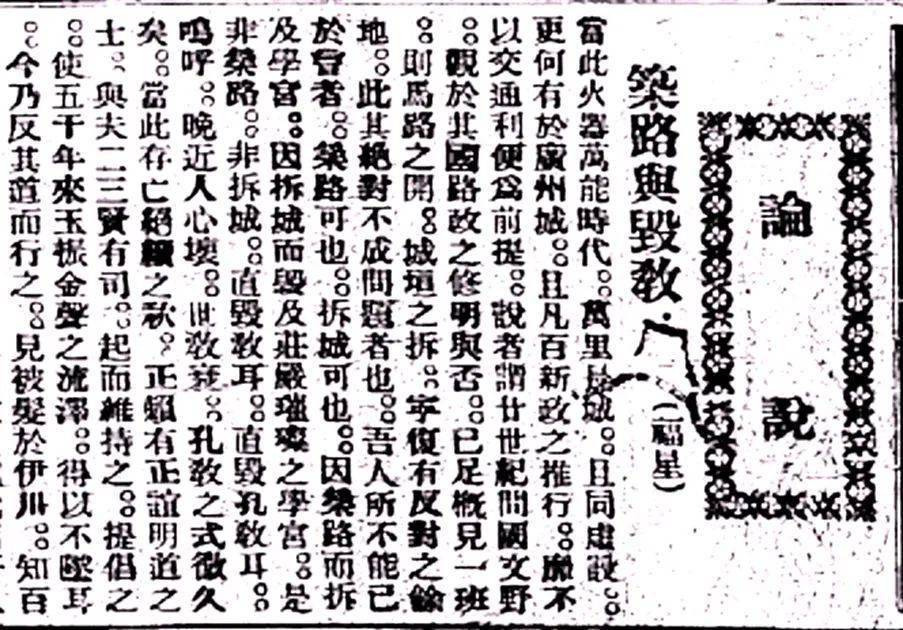 論說
築路與毀教
(福星)
當此火器萬能時代。萬里長城。且同虛設。
更何有於廣州城。且凡百新政之推行。靡不
以交通利便爲前提。說者謂廿世紀間國文野
。觀於其國路政之修明與否。已足槪見一班
。則馬路之開。城垣之拆。寧復有反對之餘
地。此其絕對不成問題者也。吾人所不能已
於言者。築路可也。拆城可也。因築路而拆
及學宮。因拆城而毀及莊嚴璀璨之學宮。是
非築路。非拆城。直毀敎耳。直毀孔敎耳。
嗚呼。晚近人心壞。世敎衰。孔敎之式微久
矣。當此存亡絕續之秋。正賴有正誼明道之
士。與夫二三賢有司。起而維持之。提倡之
。使五千年來玉振金聲之流澤。得以不墜耳
。今乃反其道而行之。見被髮於伊川。知百